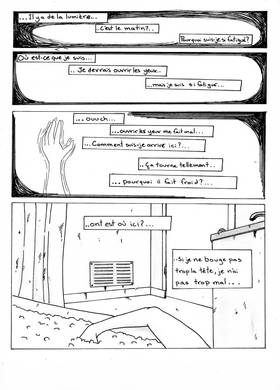 ...Il y a de la lumière...
...c'est le matin?...
Pourquoi suis-je si fatigué?
Où est-ce que je suis...
..Je devrais ouvrir les yeux..
..mais je suis si fatigué...
...ouuch...
...ouvrir les yeux me fait mal...
...Comment suis-je arrivé ici?...
...Ça tourne tellement..
...pourquoi il fait froid?...
..ont est où ici?...
..si je ne bouge pas
trop la tête, je n'ai
pas trop mal...